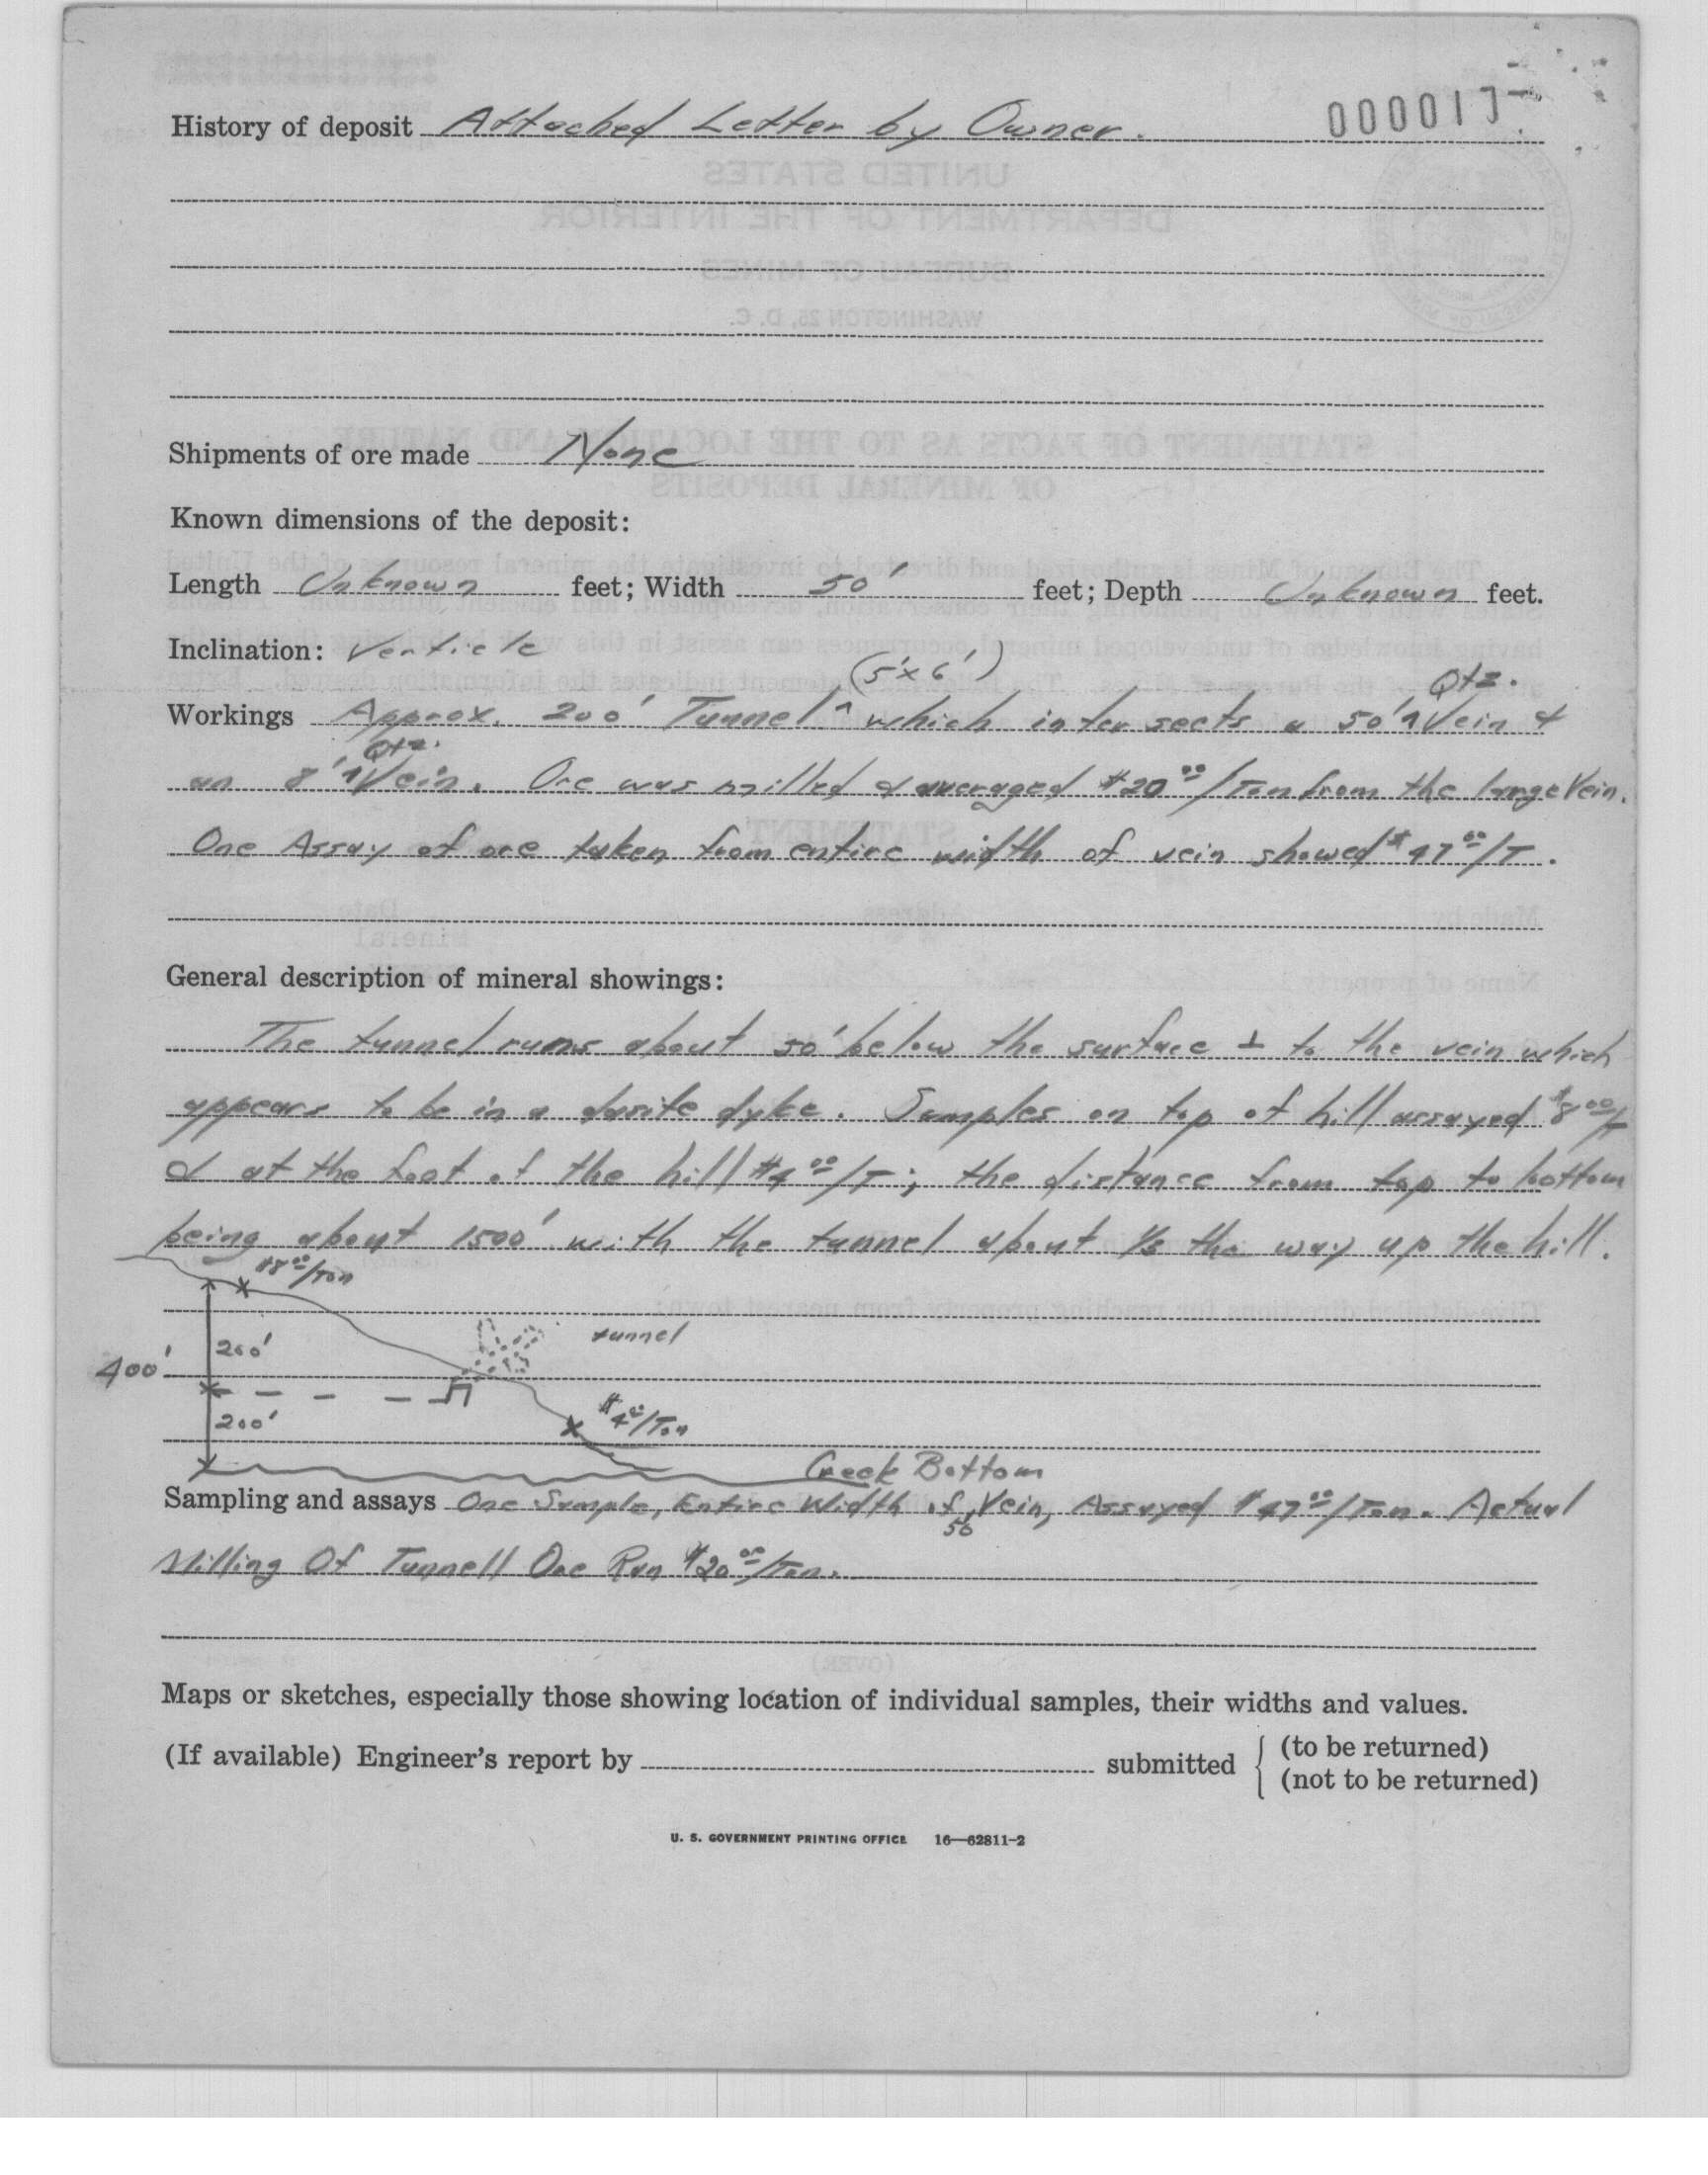 History of deposit Attached Letter by Owner.
Shipments of ore made None
Known dimensions of the deposit:
Length Unknown feet; Width 50' feet; Depth Unknown feet.
Inclination: Verticle
(5'x6') Qtz.
Workings Approx. 200' Tunnel ^ which intersects a 50' ^ Vein &
Qtz.
an 8' ^ Vein. Ore was milled & averaged $20.00/Ton from the large Vein.
One Assay of ore taken from entire width of vein showed $47.00/T.
General description of mineral showings:
The tunnel runs about 50' below the surface ⊥ to the vein which
appears to be in a dasite dyke. Samples on top of hill assayed $8.00/T
& at the foot of the hill $4.00/T; the distance from top to bottom
being about 1500' with the tunnel about 1/3 the way up the hill.
$8.00/Ton
tunnel
200'
400'
200'
$4.00/Ton
Creek Bottom
Sampling and assays One Sample, Entire Width of Vein, Assayed $47.00/Ton. Actual
50'
Milling Of Tunnell Ore Ran $20.00/Ton.
Maps or sketches, especially those showing location of individual samples, their widths and values.
(If available) Engineer's report by submitted (to be returned)
(not to be returned)
U. S. GOVERNMENT PRINTING OFFICE 16—62811-2